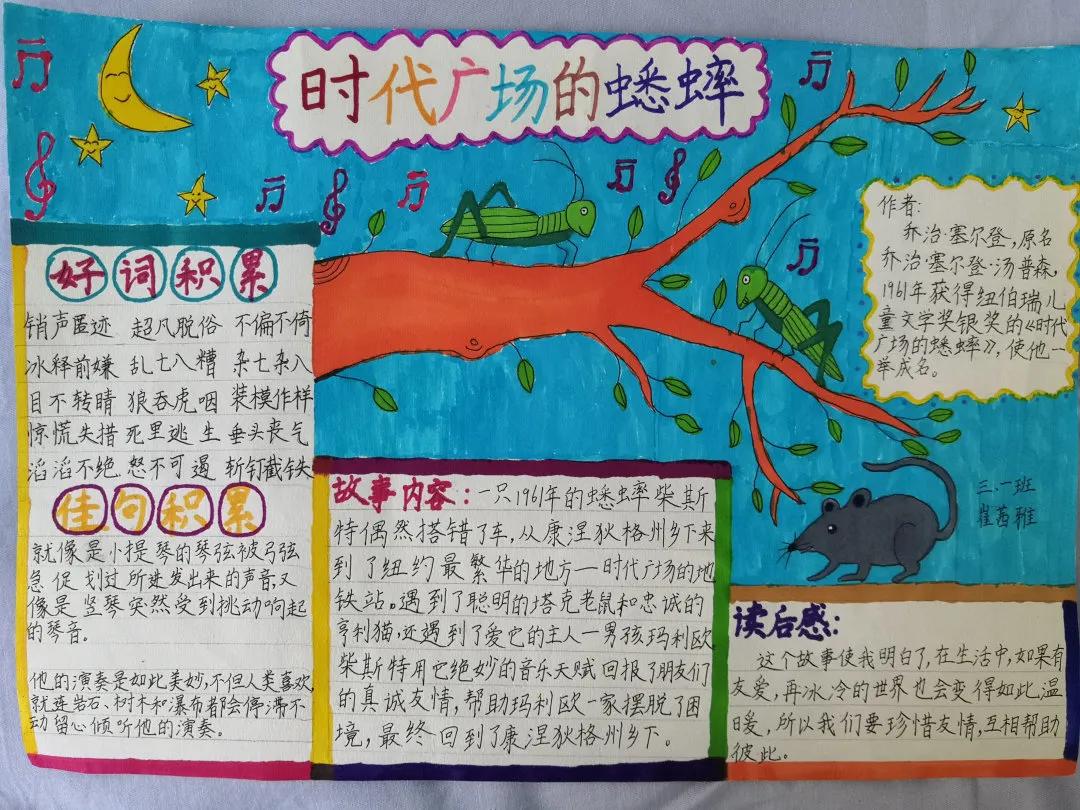 时代广场的蟋蟀
好词积累
销声匿迹 超凡脱俗 不偏不倚
冰释前嫌 乱七八糟 杂七杂八
目不转睛 狼吞虎咽 装模作样
惊慌失措 死里逃生 垂头丧气
滔滔不绝 怒不可遏 斩钉截铁
佳句积累
就像是小提琴的琴弦被弓弦
急促划过所迸发出来的声音,又
像是竖琴突然受到挑动响起
的琴音。
他的演奏是如此美妙,不但人类喜欢,
就连岩石、树木和瀑布都会停滞不
动留心倾听他的演奏。
故事内容:一只1961年的蟋蟀柴斯
特偶然搭错了车,从康涅狄格州乡下来
到了纽约最繁华的地方—时代广场的地
铁站。遇到了聪明的塔克老鼠和忠诚的
亨利猫,还遇到了爱它的主人—男孩玛利欧
柴斯特用它绝妙的音乐天赋回报了朋友们
的真诚友情,帮助玛利欧一家摆脱了困
境,最终回到了康涅狄格州乡下。
作者:
乔治·塞尔登,原名
乔治·塞尔登·汤普森,
1961年获得纽伯瑞儿
童文学奖银奖的《时代
广场的蟋蟀》,使他一
举成名。
三.一班
崔茜雅
读后感:
这个故事使我明白了,在生活中,如果有
友爱,再冰冷的世界也会变得如此温
暖,所以我们要珍惜友情,互相帮助
彼此。